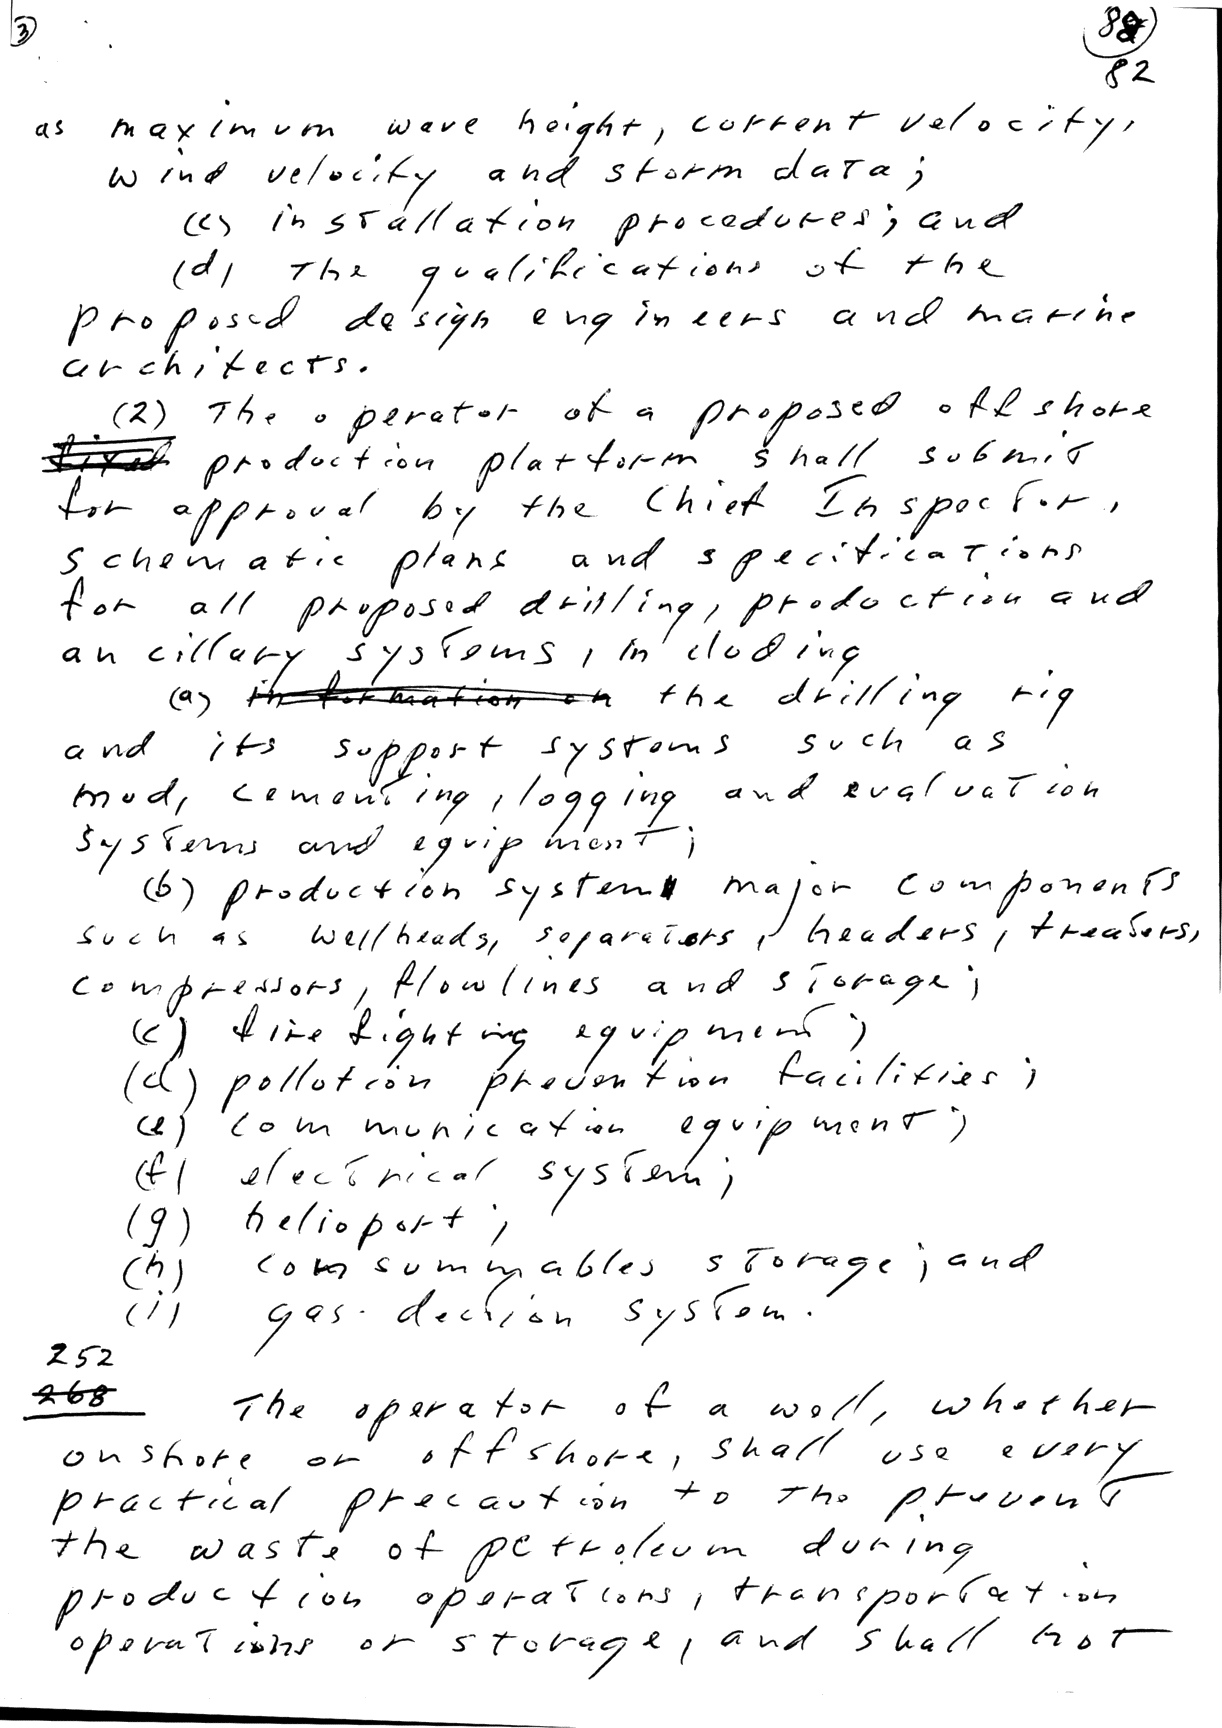 3
82
as maximum wave height, current velocity,
wind velocity and storm data;
(c) installation procedures; and
(d) The qualifications of the
proposed design engineers and marine
architects.
(2) The operator of a proposed offshore
fixed production platform shall submit
for approval by the Chief Inspector,
schematic plans and specifications
for all proposed drilling, production and
ancillary systems, including
(a) information on the drilling rig
and its support systems such as
mud, cementing, logging and evaluation
systems and equipment;
(b) production system major components
such as wellheads, separators, headers, treaters,
compressors, flowlines and storage;
(c) fire fighting equipment;
(d) pollution prevention facilities;
(e) communication equipment;
(f) electrical system;
(g) helioport;
(h) consummables storage; and
(i) gas dection system.
252
268 The operator of a well, whether
onshore or offshore, shall use every
practical precaution to the prevent
the waste of petroleum during
production operations, transportation
operations or storage, and shall not